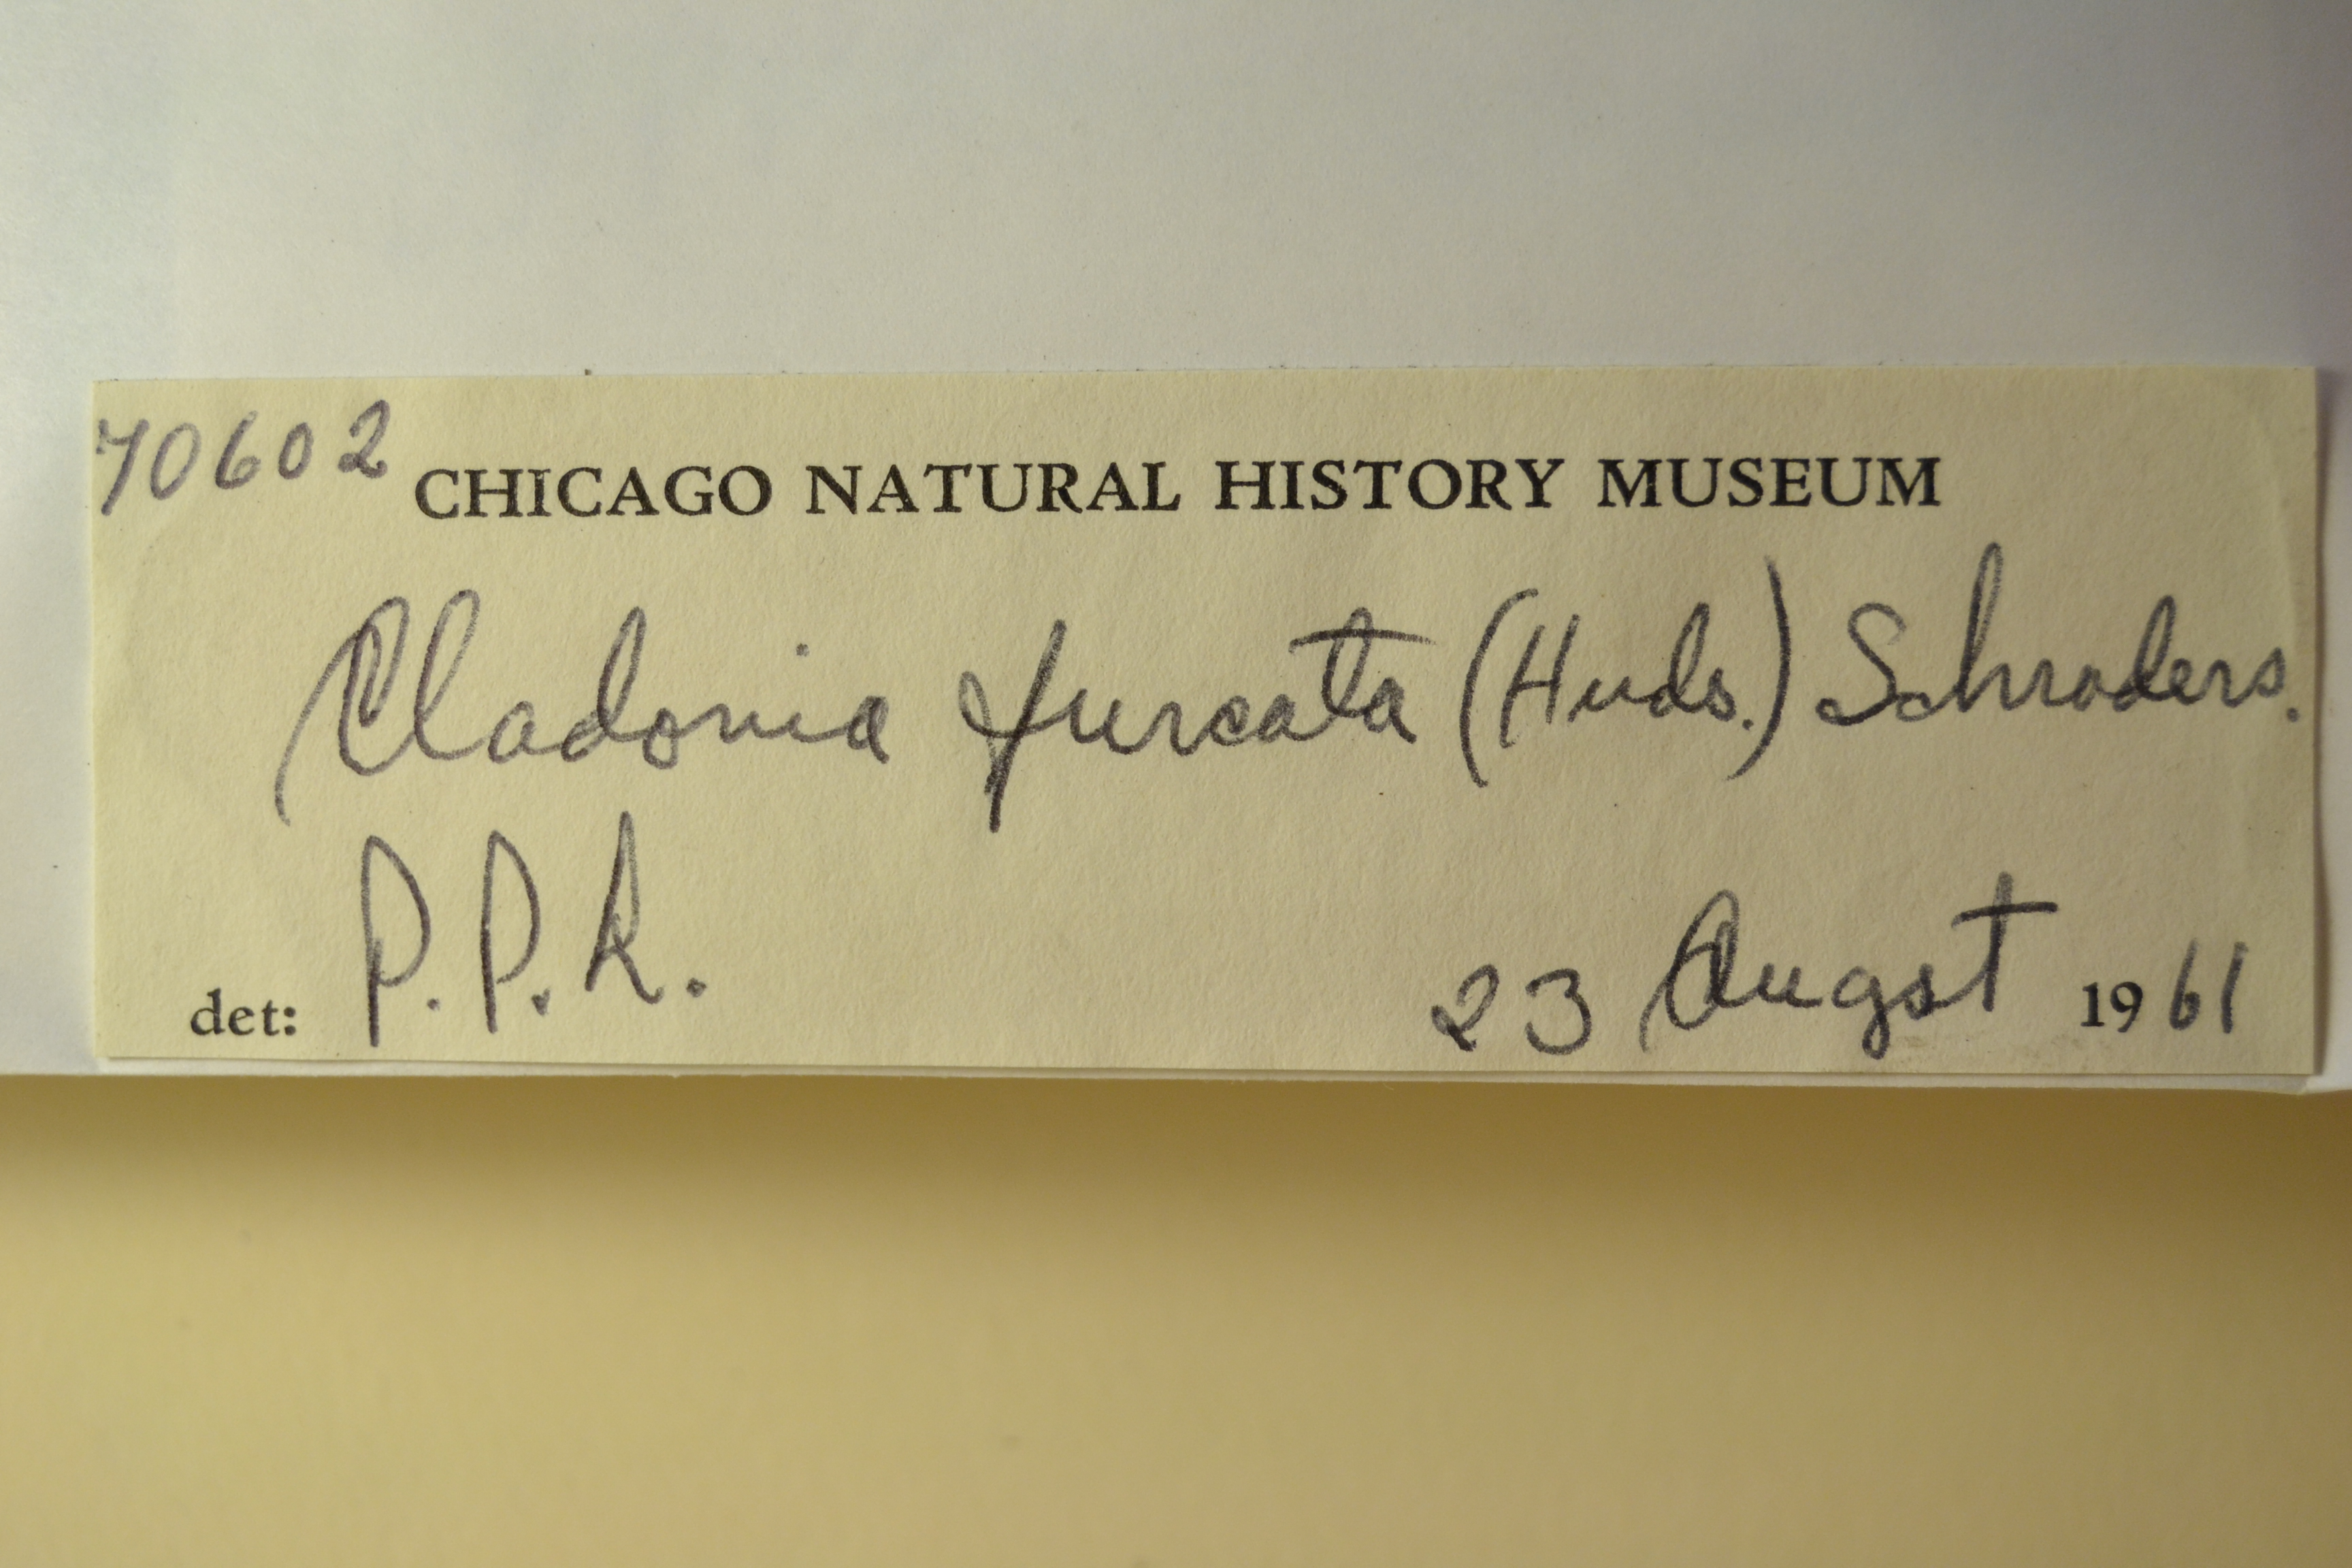 70602
CHICAGO NATURAL HISTORY MUSEUM
Cladonia furcata (Huds.) Schraders.
det: P.P.R. 23 Augst 1961